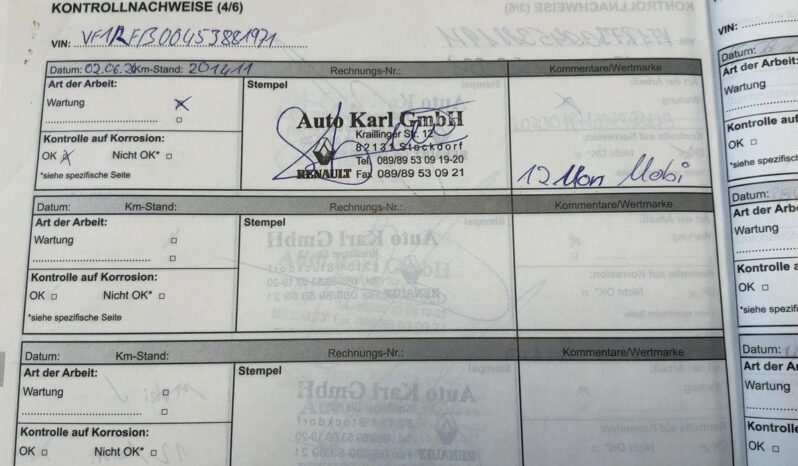 KONTROLLNACHWEISE (4/6)
VIN: VF1RFB00453881971
Datum: 02.06.21 Km-Stand: 201411 Rechnungs-Nr.: Kommentare/Wertmarke
Art der Arbeit: Stempel
Wartung
Auto Karl GmbH
Kraillinger Str. 12
82131 Stockdorf
Tel. 089/89 53 09 19-20
RENAULT Fax 089/89 53 09 21
Kontrolle auf Korrosion:
OK Nicht OK*
*siehe spezifische Seite
12 Mon Mobi
Datum: Km-Stand: Rechnungs-Nr.: Kommentare/Wertmarke
Art der Arbeit: Stempel
Wartung
Kontrolle auf Korrosion:
OK Nicht OK*
*siehe spezifische Seite
Datum: Km-Stand: Rechnungs-Nr.: Kommentare/Wertmarke
Art der Arbeit: Stempel
Wartung
Kontrolle auf Korrosion:
OK Nicht OK*
VIN:
Datum:
Art der Arbeit
Wartung
Kontrolle auf
OK
*siehe spezifische
Art der Arbeit
Wartung
Kontrolle auf
OK
*siehe spezifisch
Datum:
Art der Arbeit
Wartung
Kontrolle auf
OK